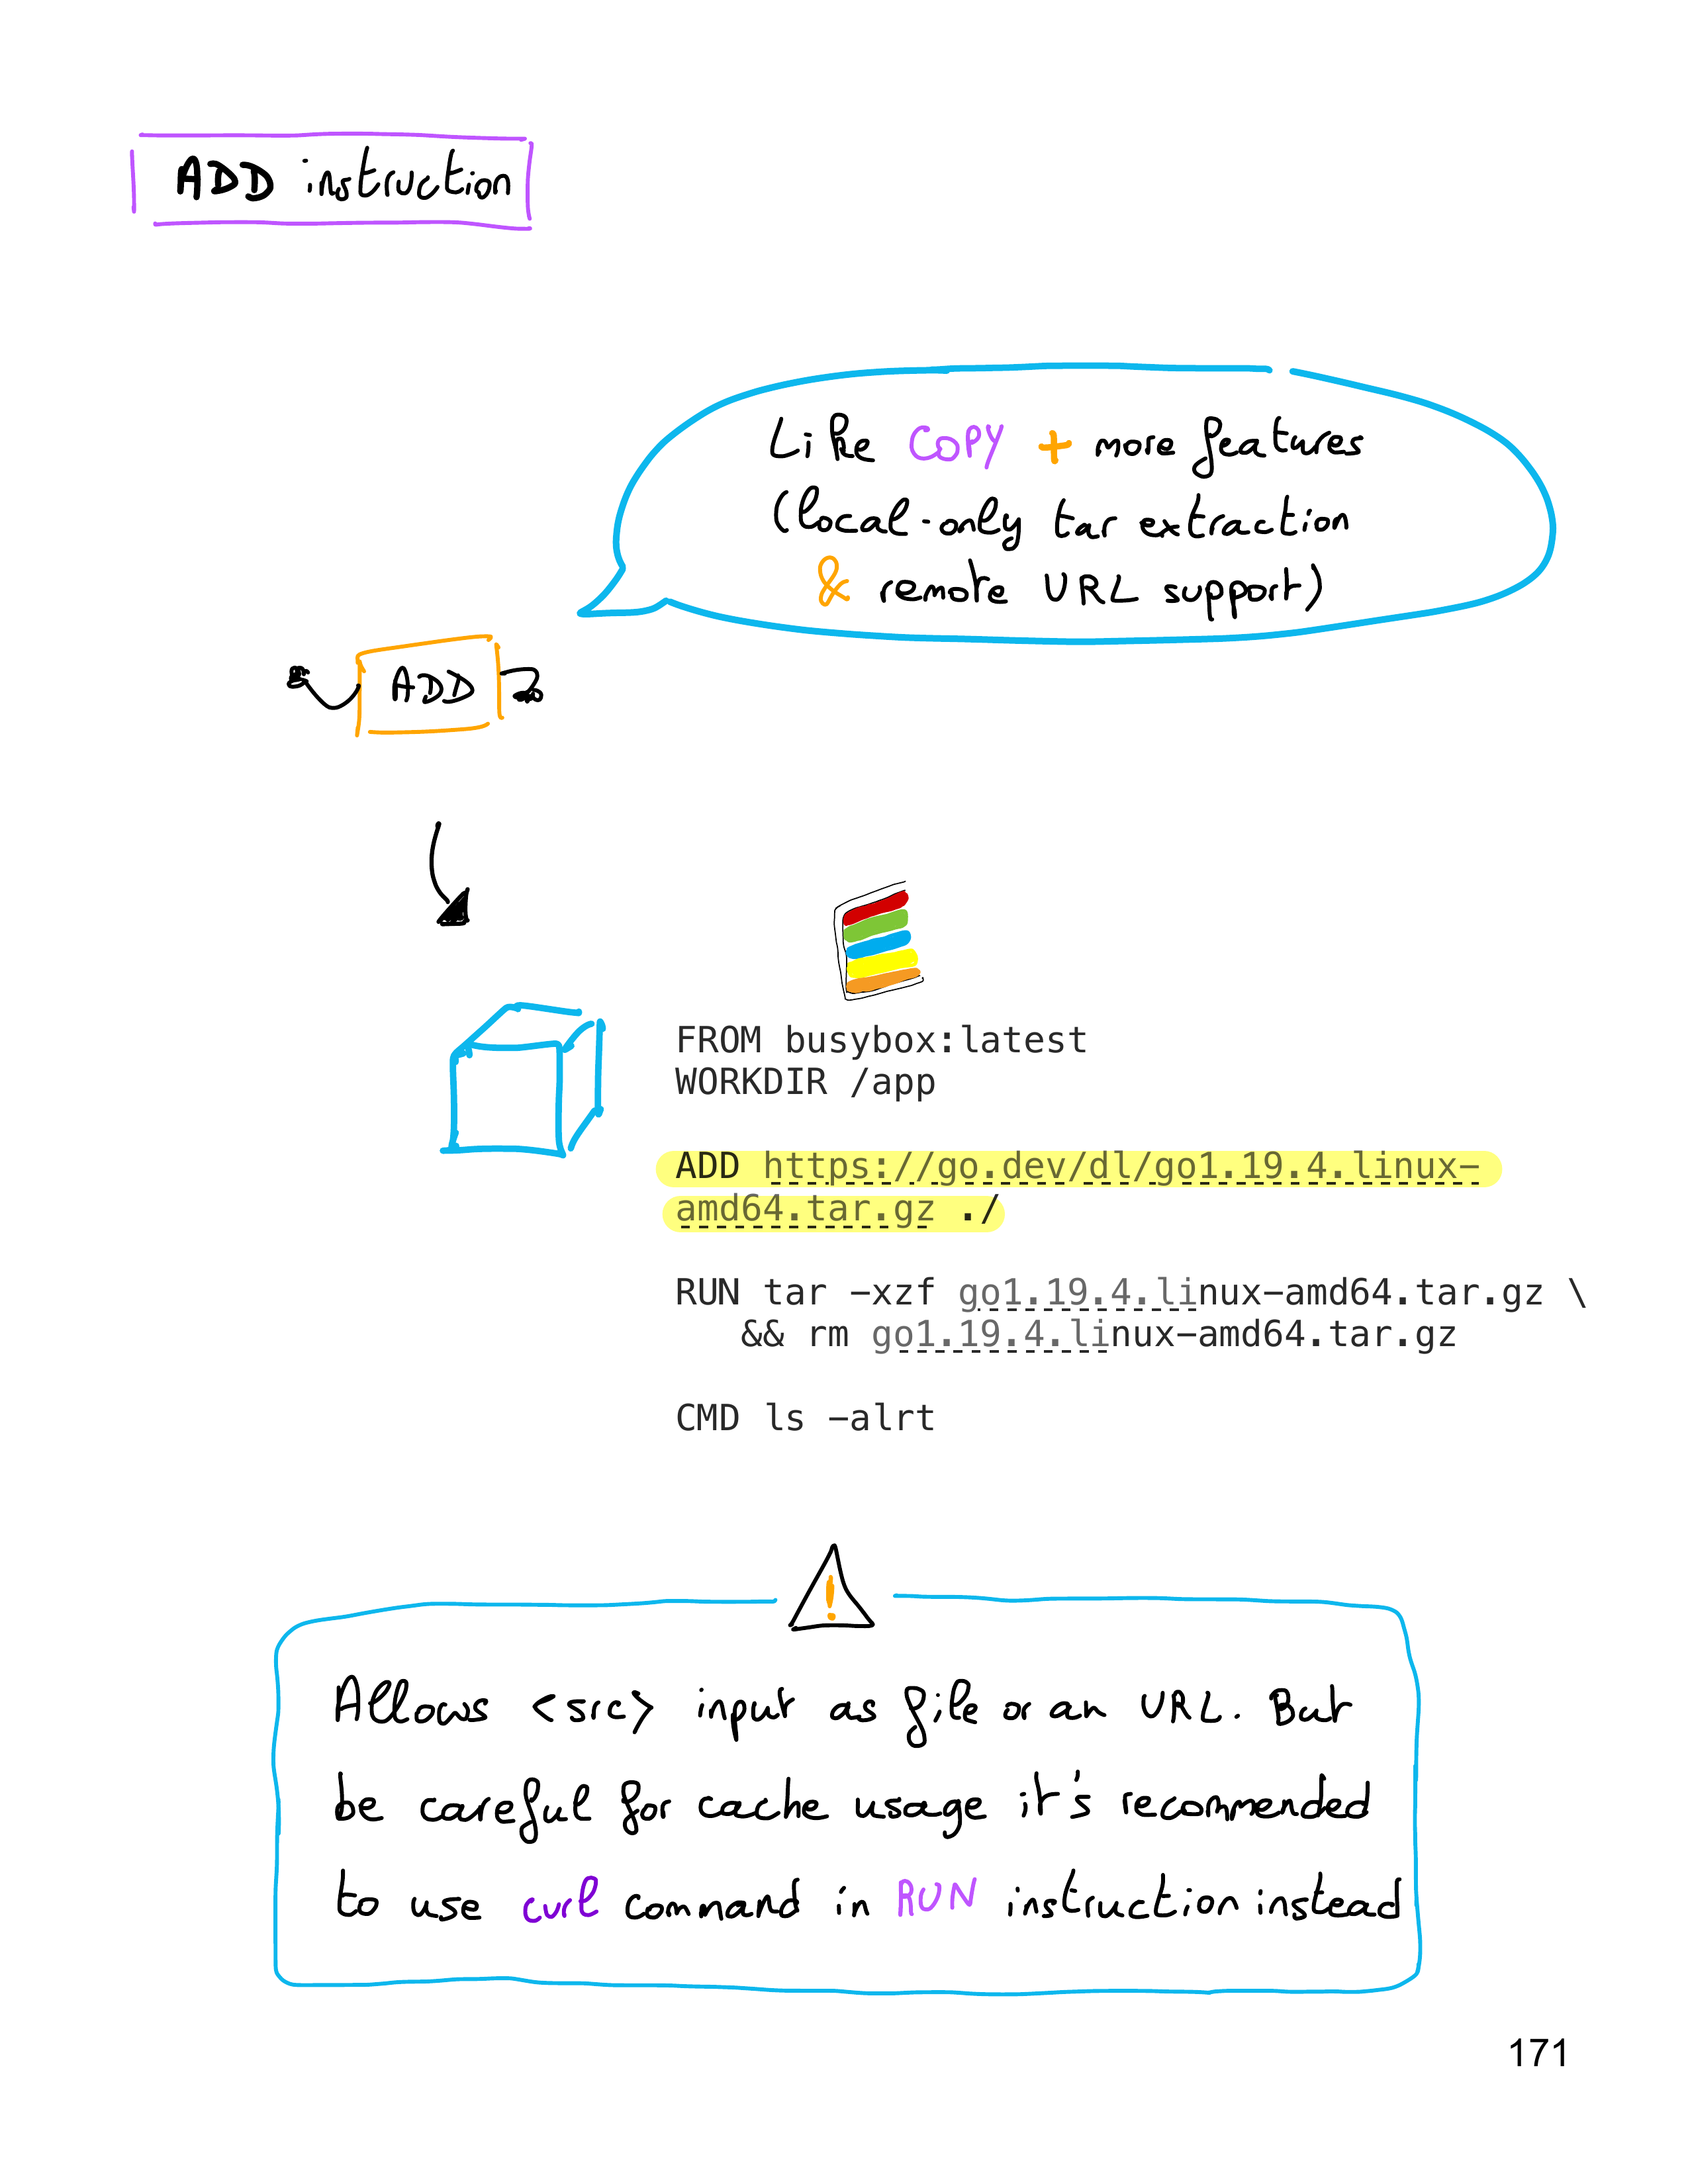 ADD instruction
Like COPY + more features
(local-only tar extraction
& remote URL support)
ADD
FROM busybox:latest
WORKDIR /app
ADD https://go.dev/dl/go1.19.4.linux-
amd64.tar.gz ./
RUN tar -xzf go1.19.4.linux-amd64.tar.gz \
&& rm go1.19.4.linux-amd64.tar.gz
CMD ls -alrt
!
Allows <src> input as file or an URL. But
be careful for cache usage it's recommended
to use curl command in RUN instruction instead
171